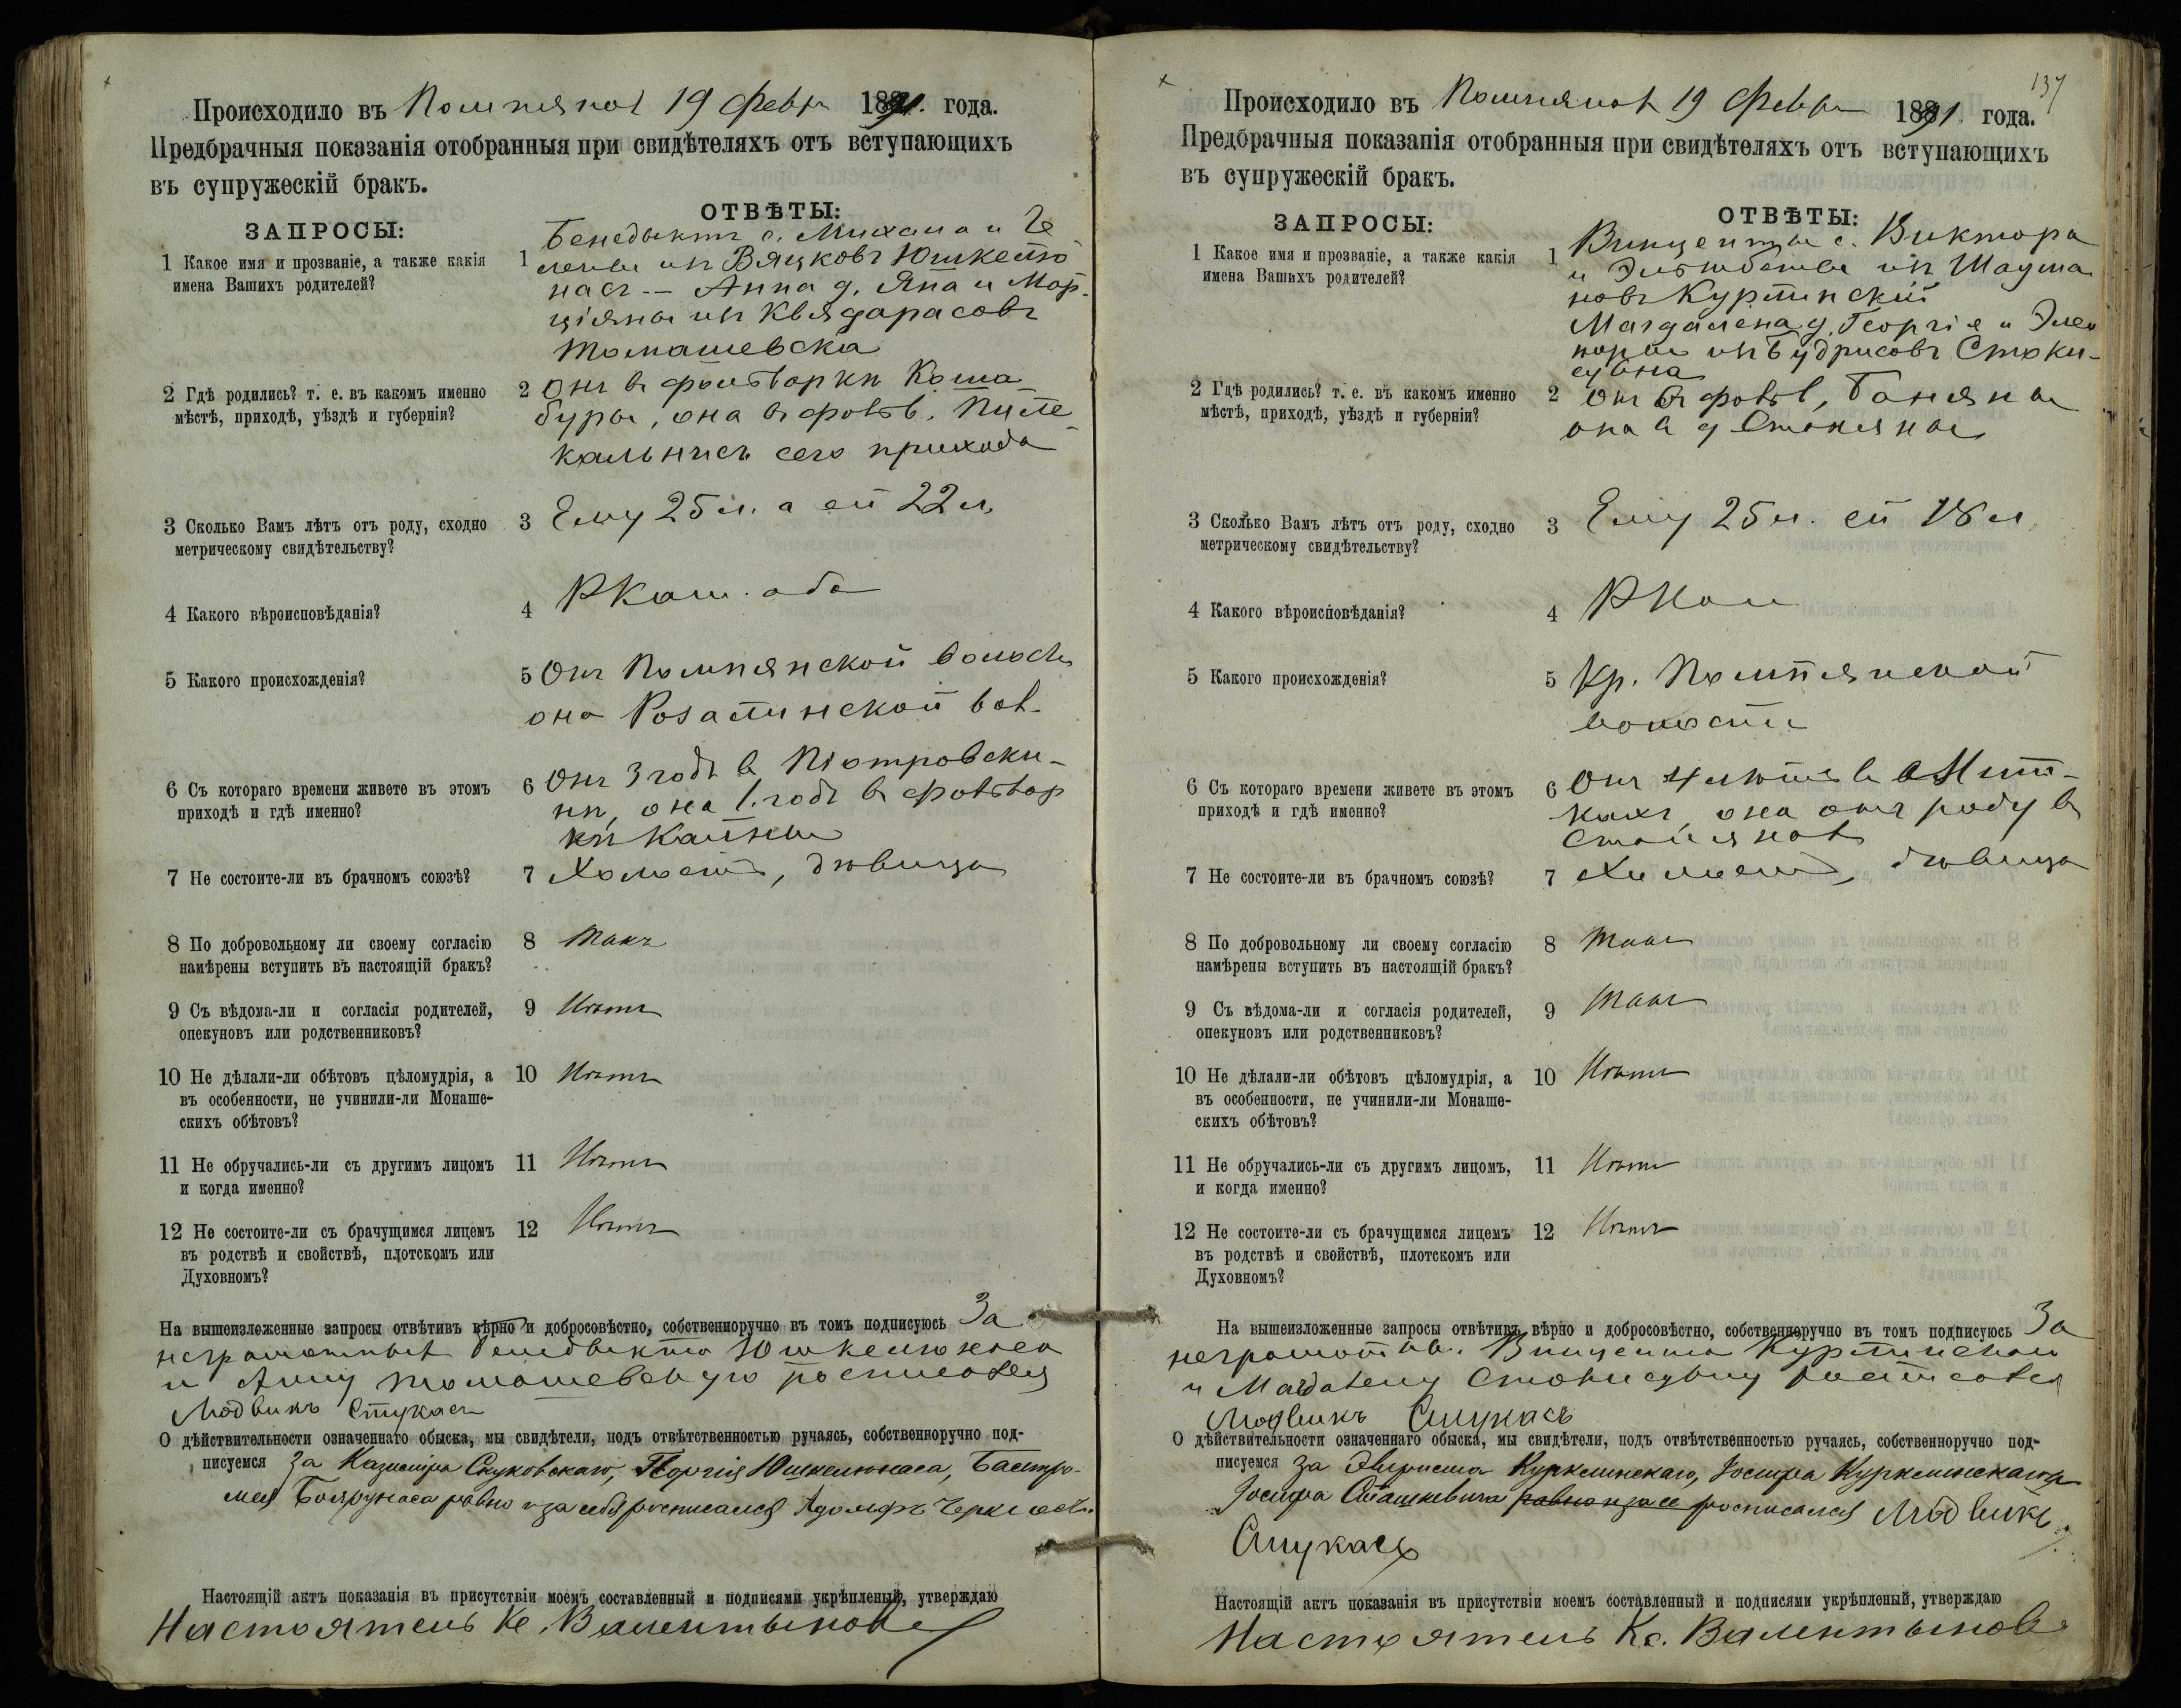 Происходило въ Помпянахъ 19 Февр 1891 года.
Предбрачныя показанія отобранныя при свидѣтеляхъ отъ вступающихъ
въ супружескій бракъ.
ЗАПРОСЫ:
ОТВѢТЫ:
1 Какое имя и прозваніе, а также какія
имена Вашихъ родителей?
1 Бенедыктъ с. Михаила и Че
изъ Вяцковъ Юшкелю
насъ — Анна д. Яна и Мар-
ціяны изъ Квядарасовъ
Томашевска
2 Гдѣ родились? т. е. въ какомъ именно
мѣстѣ, приходѣ, уѣздѣ и губерніи?
2 Онъ въ фольваркѣ Коша-
буры, она въ фольв. Пиле-
кальнисъ сего прихода
3 Сколько Вамъ лѣтъ отъ роду, сходно
метрическому свидѣтельству?
3 Ему 25 л. а ей 22 л.
4 Какого вѣроисповѣданія?
4 РКат. оба
5 Какого происхожденія?
5 Онъ Помпянской волости
она Розалинской вол.
6 Съ котораго времени живете въ этомъ
приходѣ и гдѣ именно?
6 Онъ 3 годъ въ Піотровски-
нѣ, она 1 годъ въ фольвар
кѣ Кайны
7 Не состоите-ли въ брачномъ союзѣ?
7 Холостъ, дѣвица
8 По добровольному ли своему согласію
намѣрены вступить въ настоящій бракъ?
8 Такъ
9 Съ вѣдома-ли и согласія родителей,
опекуновъ или родственниковъ?
9 Нѣтъ
10 Не дѣлали-ли обѣтовъ цѣломудрія, а
въ особенности, не учинили-ли Монаше-
скихъ обѣтовъ?
10 Нѣтъ
11 Не обручались-ли съ другимъ лицомъ
и когда именно?
11 Нѣтъ
12 Не состоите-ли съ брачущимся лицемъ
въ родствѣ и свойствѣ, плотскомъ или
Духовномъ?
12 Нѣтъ
На вышеизложенные запросы отвѣтивъ вѣрно и добросовѣстно, собственноручно въ томъ подписуюсь За
неграмотныхъ Бенедыкта Юшкелюнаса
и Анну Томашевскую росписался
Людвикъ Стукасъ
О дѣйствительности означеннаго обыска, мы свидѣтели, подъ отвѣтственностью ручаясь, собственноручно под-
писуемся За Казимира Скуковскаго, Георгія Юшкелюнаса, Балтро-
мея Боярунаса равно и за себя росписался Адольфъ
Настоящій актъ показанія въ присутствіи моемъ составленный и подписями укрѣпленый, утверждаю
Настоятель Кс. Валентыновъ
137
Происходило въ Помпянахъ 19 Февр 1891 года.
Предбрачныя показанія отобранныя при свидѣтеляхъ отъ вступающихъ
въ супружескій бракъ.
ЗАПРОСЫ:
ОТВѢТЫ:
1 Какое имя и прозваніе, а также какія
имена Вашихъ родителей?
1 Винценты с. Виктора
и Эльжбеты изъ Шаума
новъ Куртинскій
Магдалена д. Георгія и Элео
норы изъ Будрисовъ Стоки-
сувна
2 Гдѣ родились? т. е. въ какомъ именно
мѣстѣ, приходѣ, уѣздѣ и губерніи?
2 Онъ въ фольв. Баняны
она въ д
3 Сколько Вамъ лѣтъ отъ роду, сходно
метрическому свидѣтельству?
3 Ему 25 л. ей 18 л.
4 Какого вѣроисповѣданія?
4 РКат
5 Какого происхожденія?
5 Кр. Помпянской
волости
6 Съ котораго времени живете въ этомъ
приходѣ и гдѣ именно?
6 Онъ 4 лѣта въ
она отъ роду въ
7 Не состоите-ли въ брачномъ союзѣ?
7 Холостъ, дѣвица
8 По добровольному ли своему согласію
намѣрены вступить въ настоящій бракъ?
8 Такъ
9 Съ вѣдома-ли и согласія родителей,
опекуновъ или родственниковъ?
9 Такъ
10 Не дѣлали-ли обѣтовъ цѣломудрія, а
въ особенности, не учинили-ли Монаше-
скихъ обѣтовъ?
10 Нѣтъ
11 Не обручались-ли съ другимъ лицомъ,
и когда именно?
11 Нѣтъ
12 Не состоите-ли съ брачущимся лицемъ
въ родствѣ и свойствѣ, плотскомъ или
Духовномъ?
12 Нѣтъ
На вышеизложенные запросы отвѣтивъ вѣрно и добросовѣстно, собственноручно въ томъ подписуюсь За
неграмотныхъ Винцента Куртинскаго
и Магдалену Стокисувну росписался
Людвикъ Стукасъ
О дѣйствительности означеннаго обыска, мы свидѣтели, подъ отвѣтственностью ручаясь, собственноручно под-
писуемся За Курклинскаго, Іосифа Куркликскаго
Іосифа Сташкевича равно и за се росписался Людвикъ
Стукасъ
Настоящій актъ показанія въ присутствіи моемъ составленный и подписями укрѣпленый, утверждаю
Настоятель Кс. Валентыновъ